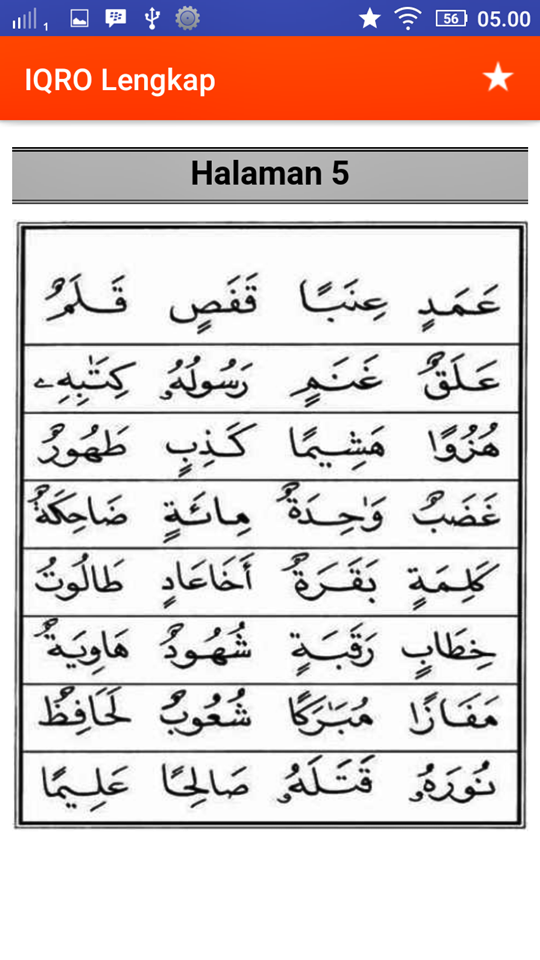 1 56 05.00
IQRO Lengkap
Halaman 5
عَمَدٍ عِنَبًا قَفَصٍ قَلَمٌ
عَلَقٌ غَنَمٍ رَسُولُهُۥ كِتَٰبِهِۦ
هُزُوًا هَشِيمًا كَذِبٍ طَهُورٌ
غَضَبٌ وَٰحِدَةٌ مِائَةٍ ضَاحِكَةٌ
كَلِمَةٍ بَقَرَةٌ أَخَاعَادٍ طَالُوتُ
خِطَابٍ رَقَبَةٍ شُهُودٌ هَاوِيَةٌ
مَفَازًا مُبَٰرَكًا شُعُوبٌ لَحَافِظٌ
نُورَهُۥ قَتَلَهُۥ صَالِحًا عَلِيمًا